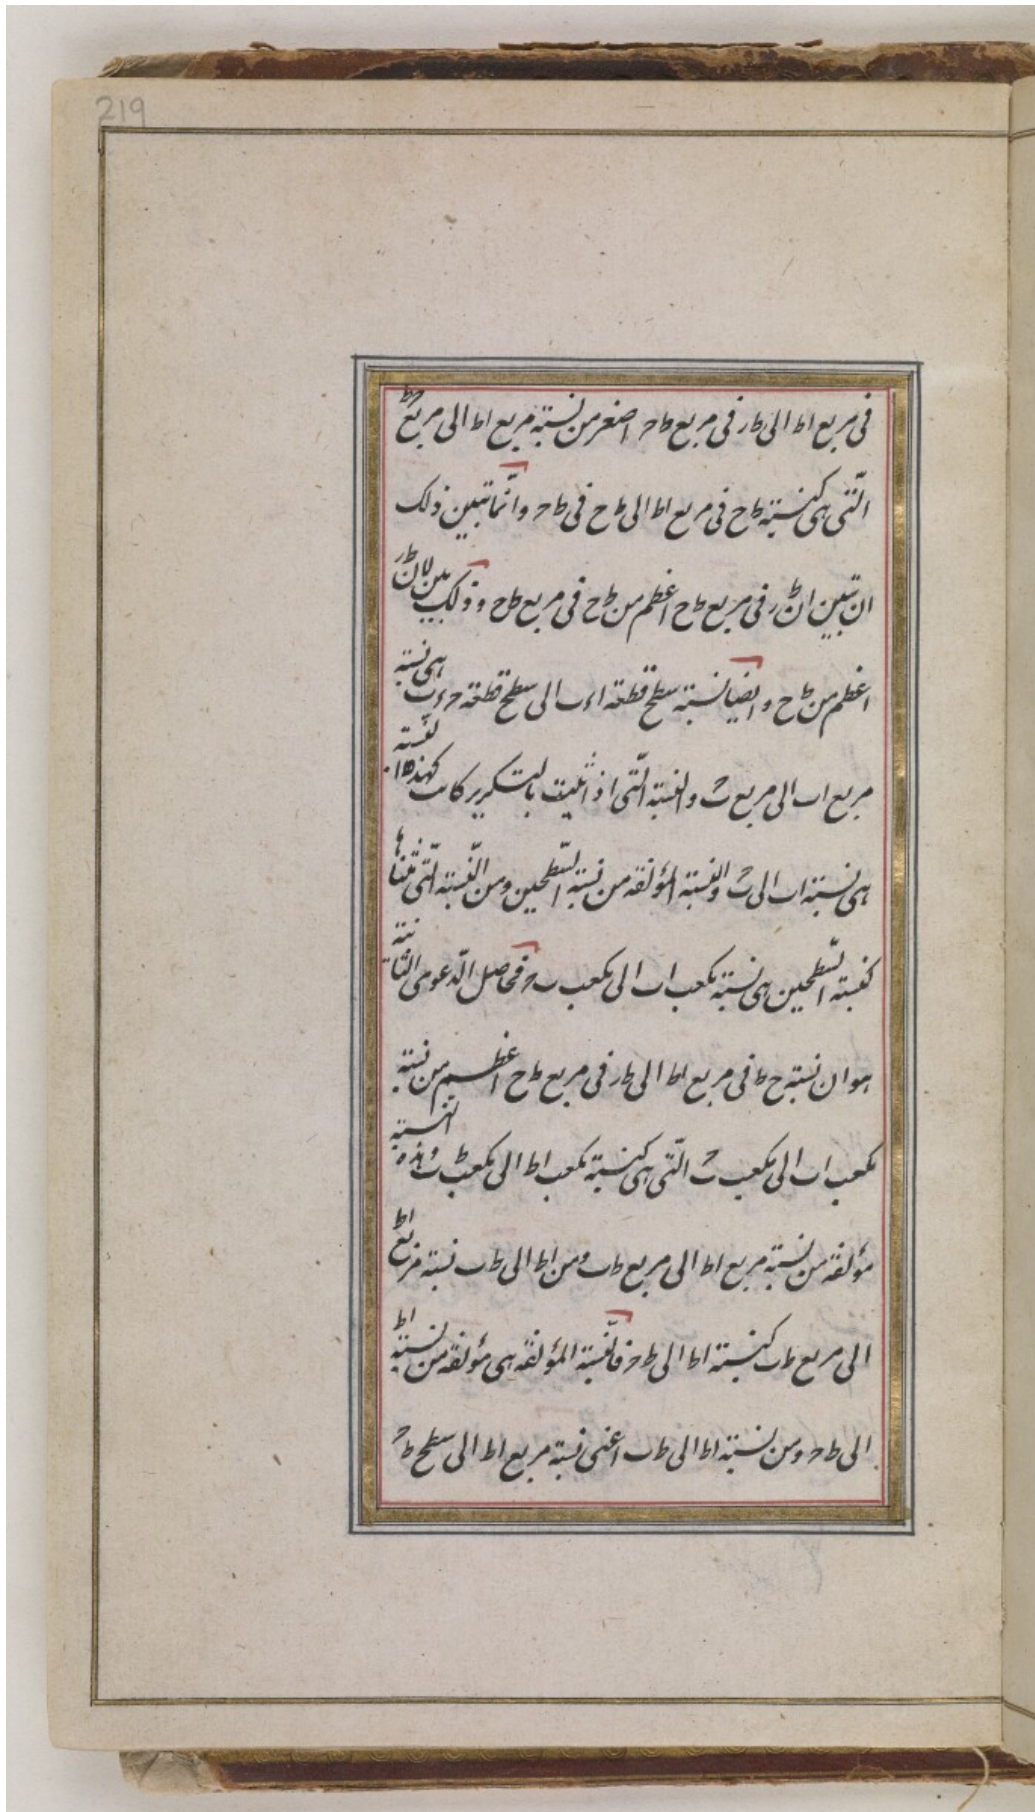 219
فى مربع اط الى طر فى مربع طح اصغر من نسبة مربع اط الى مربع طح
الّتى هى كنسبة طح فى مربع اط الى طح فى طح وانّما تبين ذلك
ان تبين ان طر فى مربع طح اعظم من طح فى مربع طح وذلك بين لان طر
اعظم من طح وايضا نسبة سطح قطعة اءب الى سطح قطعة حءب هى نسبة
مربع اب الى مربع بح والنسبة الّتى اذا ثنيت بالتكرير كانت كهذه النسبة
هى نسبة اب الى بح والنسبة المؤلفة من نسبة السّطحين ومن النّسبة الّتى مثناها
كنسبة السّطحين هى نسبة مكعب اب الى مكعب بح فحاصل الدّعوى الثانية
هو ان نسبة ح ط فى مربع اط الى طر فى مربع طح اعظم من نسبة
مكعب اب الى مكعب بح الّتى هى كنسبة مكعب اط الى مكعب طب وهذه النسبة
مؤلفة من نسبة مربع اط الى مربع طب ومن اط الى طب نسبة مربع اط
الى مربع طب كنسبة اط الى طح فالنّسبة المؤلفة هى مؤلفة من نسبة اط
الى طح ومن نسبة اط الى طب اعنى نسبة مربع اط الى سطح طح